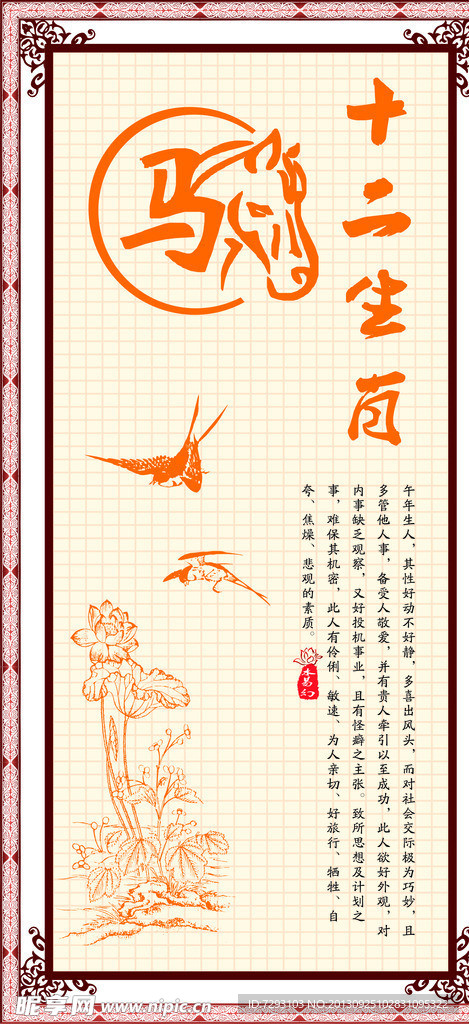 十二生肖
马
午年生人，其性好动不好静，多喜出风头，而对社会交际极为巧妙，且
多管他人事，备受人敬爱，并有贵人牵引以至成功，此人欲好外观，对
内事缺乏观察，又好投机事业，且有怪癖之主张。致所思想及计划之
事，难保其机密，此人有伶俐、敏速、为人亲切、好旅行、牺牲、自
夸、焦燥、悲观的素质。
昵享网 www.nipic.cn
ID:7293103 NO:20130925102831095322